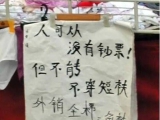 人可以
沒有鈔票!
但不能
不穿短袂
外销全棉